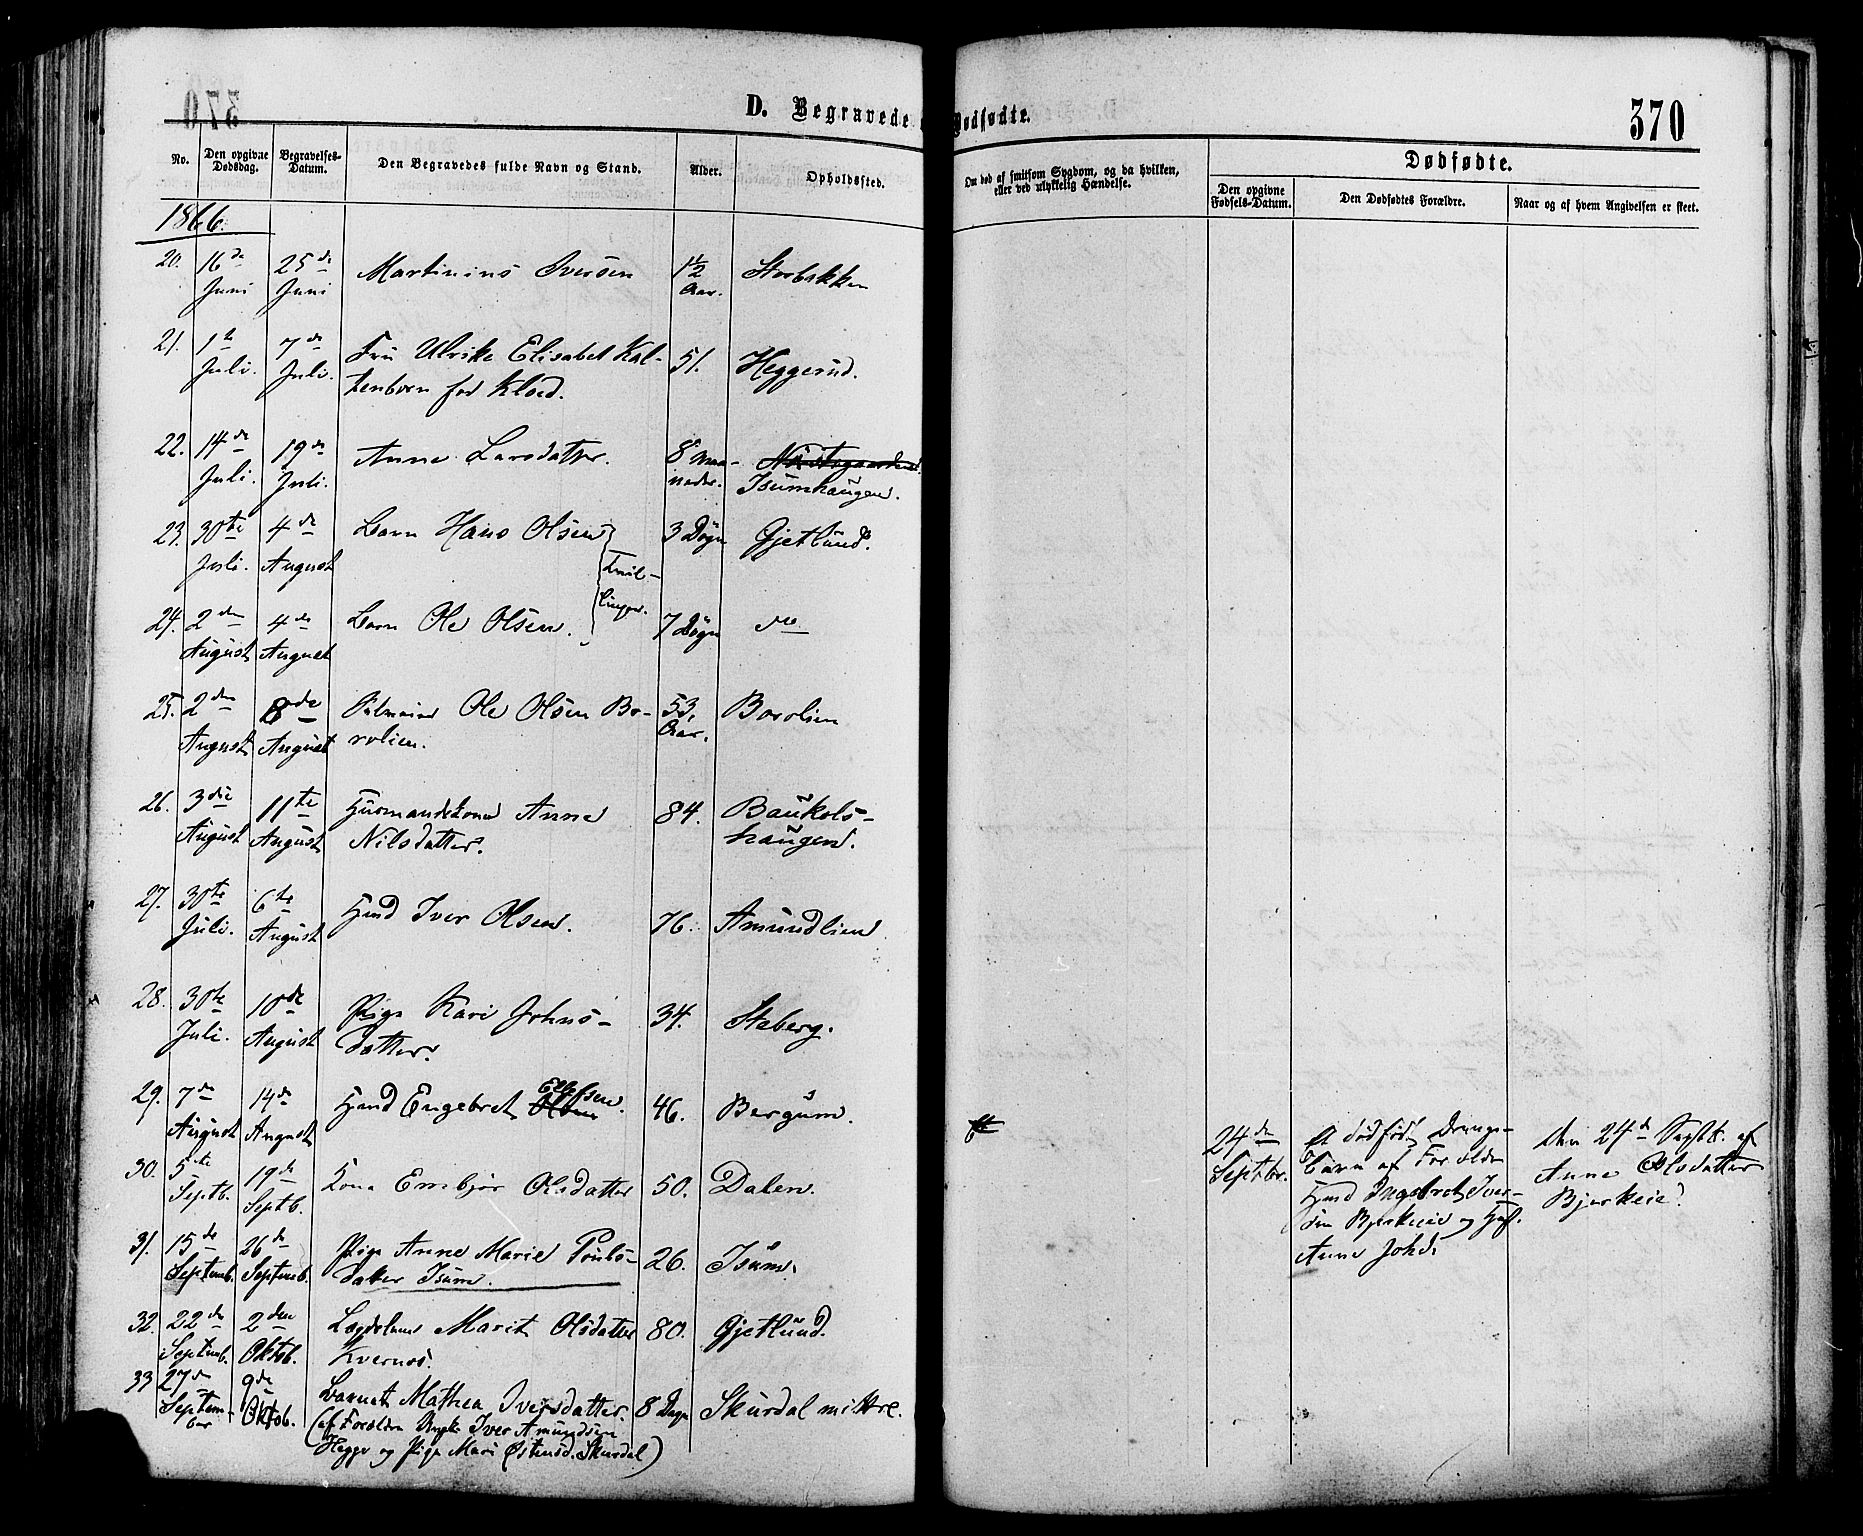 D. Begravede
Dødfødte.
370
No.
Den opgivne Dødsdag.
Begravelses-Datum.
Den Begravedes fulde Navn og Stand.
Alder.
Opholdssted.
Om død af smitsom Sygdom, og da hvilken,
eller ved ulykkelig Hændelse.
Dødfødte.
Den opgivne Fødsels-Datum.
Den Dødfødtes Forældre.
Naar og af hvem Angivelsen er skeet.
1866.
20. 16de 25de Martinius Iversen 1½ Storbakken
Juni Juni Aar.
21. 1te 7de Fru Ulrike Elisabet Kal- 51. Heggerud.
Juli. Juli. tenborn fød Kloed.
22. 14de 19de Anne Larsdatter. 8 Maa- Nordregaarden
Juli. Juli. neder. Isumhaugen.
23. 30te 4de Barn Hans Olsen 3 Døgn Gjetlund.
Juli. August Tvil-
linger.
24. 2den 4de Barn Ole Olsen. 7 Døgn do
August August
25. 2den 8de Ole Olsen Bo- 53. Borolien
August August rolien. Aar.
26. 3die 11te Husmandskone Anne 84. Baukols-
August August Nilsdatter. haugen.
27. 30te 6te Hmd Iver Olsen. 76. Amundlien
Juli. August
28. 30te 10de Pige Kari Johns- 34. Staberg.
Juli. August datter.
29. 7de 14de Hmd Engebret Olsen 46. Bergum.
August August
30. 5te 19de Kona Embjør Olsdatter 50. Dalen.
Septb. Septb.
31. 15de 26de Pige Anne Marie Pouls- 26. Isum.
Septemb. Septemb. datter Isum.
32. 22de 2den Lægdslem Marit Olsdatter 80. Gjetlund.
Septemb. Oktob. Kvernos.
33 27de 9de Barnet Mathea Iversdatter. 8 Dage Skurdal mittre.
Septem- Oktob. (af Forældre Ungk. Iver Amundsen
ber Hegge og Pige Mari Østensd. Skurdal)
24de Et dødfødt Drenge- Den 24de Septb. af
Septbr. barn af Forældre Anne Olsdatter
Hmd Ingebret Iver- Bjerkeie.
sen Bjerkeie og Hust.
Anne Johd.